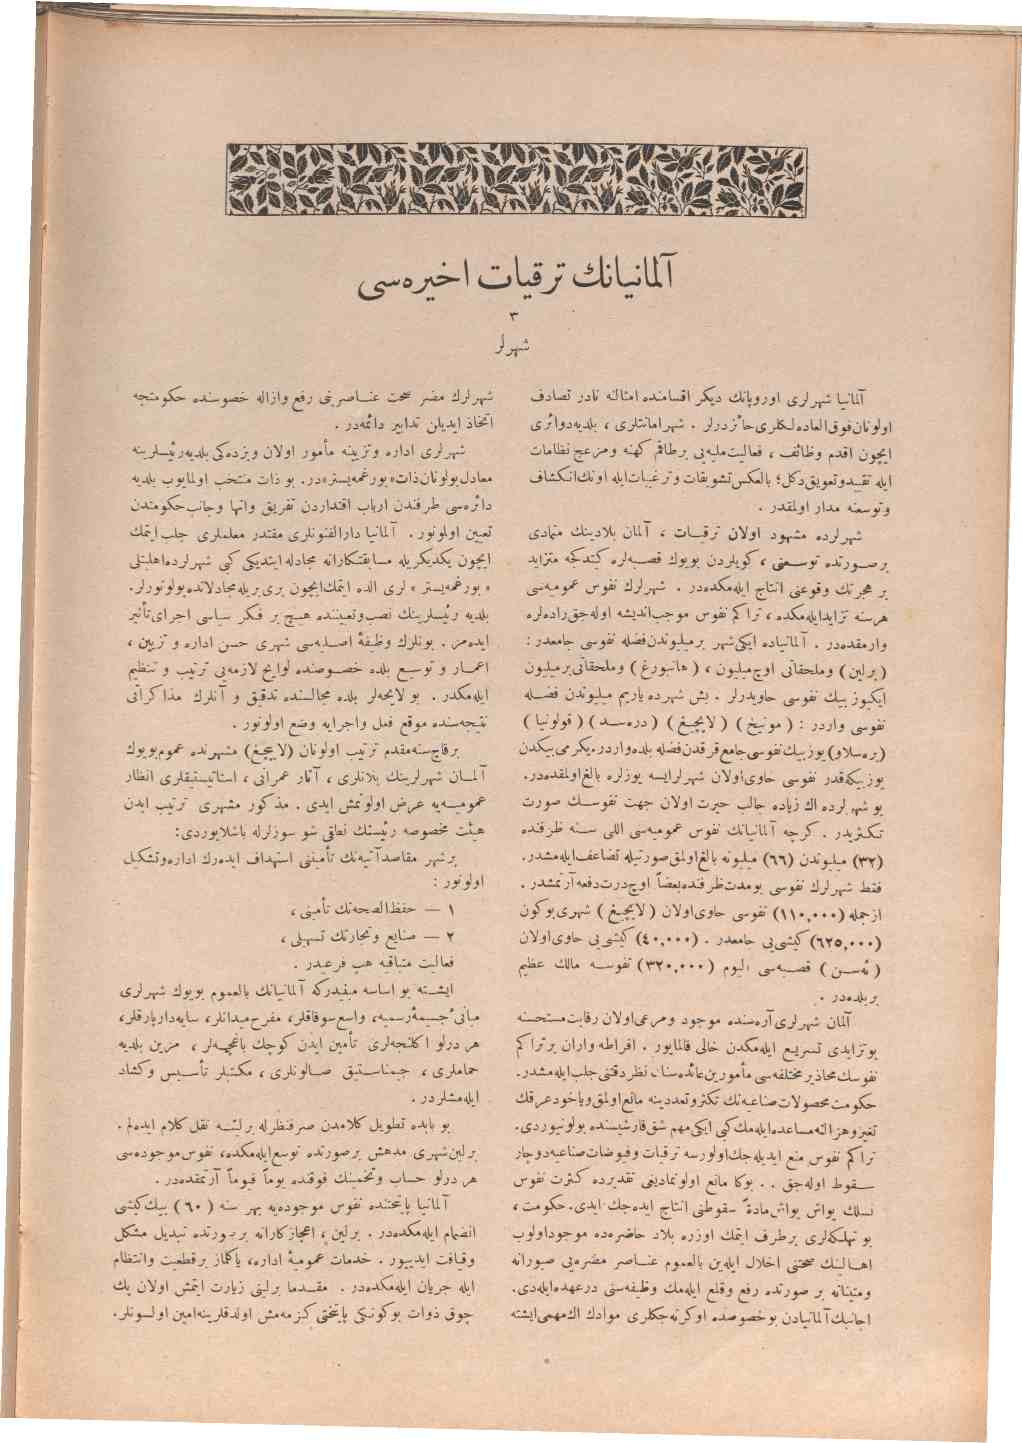 آلمانیانك ترقیات اخیره‌سی
٣
شهرلر
آلمانیا شهرلری اوروپانك دیكر اقسامنده امثالنه نادر تصادف
اولونان فوق‌العاده‌لكلری حائزدرلر . شهر امانتلری ، بلدیه دوائری
ایچون اقدم وظائف ، فعالیت ملیه‌یی برطاقم كهنه ومزعج نظامات
ایله تقیید وتعویق دكل؛ بالعكس تشویقات وترغیبات ایله اونك انكشاف
وتوسعنه مدار اولمقدر .
شهرلرده مشهود اولان ترقیات ، آلمان بلادینك متمادی
برصورتده توسعنی ، كویلردن بویوك قصبه‌لره كیتدكجه متزاید
بر هجرتك وقوعنی انتاج ایله‌مكده‌در . شهرلرك نفوس عمومیه‌سی
هرسنه تزاید ایله‌مكده ، تراكم نفوس موجب اندیشه اوله‌جق راده‌لره
وارمقده‌در . آلمانیاده ایكی شهر برمیلیوندن فضله نفوسی جامعدر :
( برلین ) وملحقاتی اوچ میلیون ، ( هانبورغ ) وملحقاتی برمیلیون
ایكیوز بیك نفوسی حاویدرلر . بش شهرده یاریم میلیوندن فضله
نفوسی واردر : ( مونیخ ) ( لایپچیغ ) ( دره‌سد ) ( قولونیا )
(بره‌سلاو) یوز بیك نفوسی جامع قرقدن فضله بلده واردر. یكرمی بیكدن
یوز بیكه قدر نفوسی حاوی اولان شهرلر ایسه یوزلره بالغ اولمقده‌در.
بو شهرلرده اك زیاده جالب حیرت اولان جهت نفوسك صورت
تكثریدر . كرچه آلمانیانك نفوس عمومیه‌سی اللی سنه ظرفنده
(٣٢) میلیوندن (٦٦) میلیونه بالغ اولمق صورتیله تضاعف ایله‌مشدر.
فقط شهرلرك نفوسی بومدت ظرفنده بعضاً اوچ درت دفعه آرتمشدر .
ازجمله (١١٠,٠٠٠) نفوسی حاوی اولان ( لایپچیغ ) شهری بوكون
(٦٢٥,٠٠٠) كیشی‌یی جامعدر . (٤٠,٠٠٠) كیشی‌یی حاوی اولان
( ئه‌سن ) قصبه‌سی الیوم (٣٢٠,٠٠٠) نفوسه مالك عظیم
بربلده‌در .
آلمان شهرلری آره‌سنده موجود ومرعی اولان رقابت مستحسنه
بوتزایدی تسریع ایله‌مكدن خالی قالمایور . افراطه واران برتراكم
نفوسك محاذیر مختلفه‌سی مأمورین عائده‌سنك نظر دقتنی جلب ایله‌مشدر.
حكومت محصولات صناعیه‌نك تكثر وتعددینه مانع اولمق ویاخود عرقك
تغیر وهزالنه مساعده ایله‌مك كبی ایكی مهم شق قارشیسنده بولونیوردی.
تراكم نفوس منع ایدیله‌جك اولورسه ترقیات وفیوضات صناعیه دوچار
سقوط اوله‌جق . . بوكا مانع اولونمادیغی تقدیرده كثرت نفوس
نسلك یواش یواش مادةً سقوطنی انتاج ایده‌جك ایدی. حكومت ،
بو تهلكه‌لری برطرف ایتمك اوزره بلاد حاضره‌ده موجود اولوب
اهالینك صحتنی اخلال ایله‌ین بالعموم عناصر مضره‌یی صبورانه
ومتینانه بر صورتده رفع وقلع ایله‌مك وظیفه‌سنی درعهده ایله‌دی.
اجانبك آلمانیادن بوخصوصده اوكرنه‌جكلری موادك اك مهمی ایشته
شهرلرك مضر صحت عناصرینی رفع وازاله خصوصنده حكومتجه
اتخاذ ایدیلن تدابیر دائمه‌در .
شهرلری اداره وتزیینه مأمور اولان وبزده‌كی بلدیه رئیسلرینه
معادل بولونان ذات «بورغمه‌یستر»در. بو ذات منتخب اولمایوب بلدیه
دائره‌سی طرفندن ارباب اقتداردن تفریق وانها وجانب حكومتدن
تعیین اولونور . آلمانیا دارالفنونلری مقتدر معلملری جلب ایتمك
ایچون یكدیكریله مسابقتكارانه مجادله ایتدیكی كبی شهرلرده اهلیتلی
« بورغمه‌یستر » لری الده ایتمك ایچون بری بریله مجادلاتده بولونورلر.
بلدیه رئیسلرینك نصب وتعییننده هیچ بر فكر سیاسی اجرای تأثیر
ایده‌مز . بونلرك وظیفهٔ اصلیه‌سی شهری حسن اداره و تزیین ،
اعمار و توسیع بلده خصوصنده لوایح لازمه‌یی ترتیب و تنظیم
ایله‌مكدر . بو لایحه‌لر بلده مجالسنده تدقیق و آنلرك مذاكراتی
نتیجه‌سنده موقع فعل واجرایه وضع اولونور .
برقاچ سنه مقدم ترتیب اولونان (لایپچیغ) مشهرنده عموم بویوك
آلمان شهرلرینك پلانلری ، آثار عمرانی ، استاتیستیقلری انظار
عمومیه‌یه عرض اولونمش ایدی . مذكور مشهری ترتیب ایدن
هیئت مخصوصه رئیسنك نطقی شو سوزلرله باشلایوردی:
برشهر مقاصد آتیه‌نك تأمیننی استهداف ایده‌رك اداره وتشكیل
اولونور :
١ — حفظ‌الصحه‌نك تأمینی ،
٢ — صنایع وتجارتك تسهیلی ،
فعالیت متباقیه هپ فرعیدر .
ایشته بو اساسه مبنیدركه آلمانیانك بالعموم بویوك شهرلری
مبانیٔ جسیمهٔ رسمیه، واسع سوقاقلر، مفرح میدانلر، سایه‌دار پارقلر،
هر درلو اكلنجه‌لری تأمین ایدن كوچك باغچه‌لر ، مزین بلدیه
حماملری ، جیمناستیق صالونلری ، مكتبلر تأسیس وكشاد
ایله‌مشلردر .
بو بابده تطویل كلامدن صرفنظرله برلینه نقل كلام ایده‌لم .
برلین شهری مدهش برصورتده توسع ایله‌مكده، نفوس موجوده‌سی
هر درلو حساب وتخمینك فوقنده یوماً فیوماً آرتمقده‌در .
آلمانیا پایتختنده نفوس موجوده‌یه بهر سنه ( ٦٠ ) بیك كیشی
انضمام ایله‌مكده‌در . برلین ، اعجازكارانه برصورتده تبدیل مشكل
وقیافت ایدییور . خدمات عمومیهٔ اداره، یاكلماز برقطعیت وانتظام
ایله جریان ایله‌مكده‌در . مقدما برلینی زیارت ایتمش اولان پك
چوق ذوات بوكونكی پایتختی كزمه‌مش اولدقلرینه امین اولسونلر.